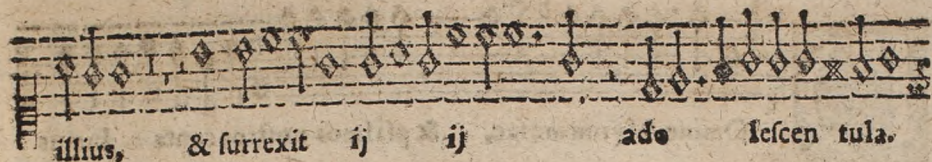 illius, & surrexit ij ij ado lescen tula.